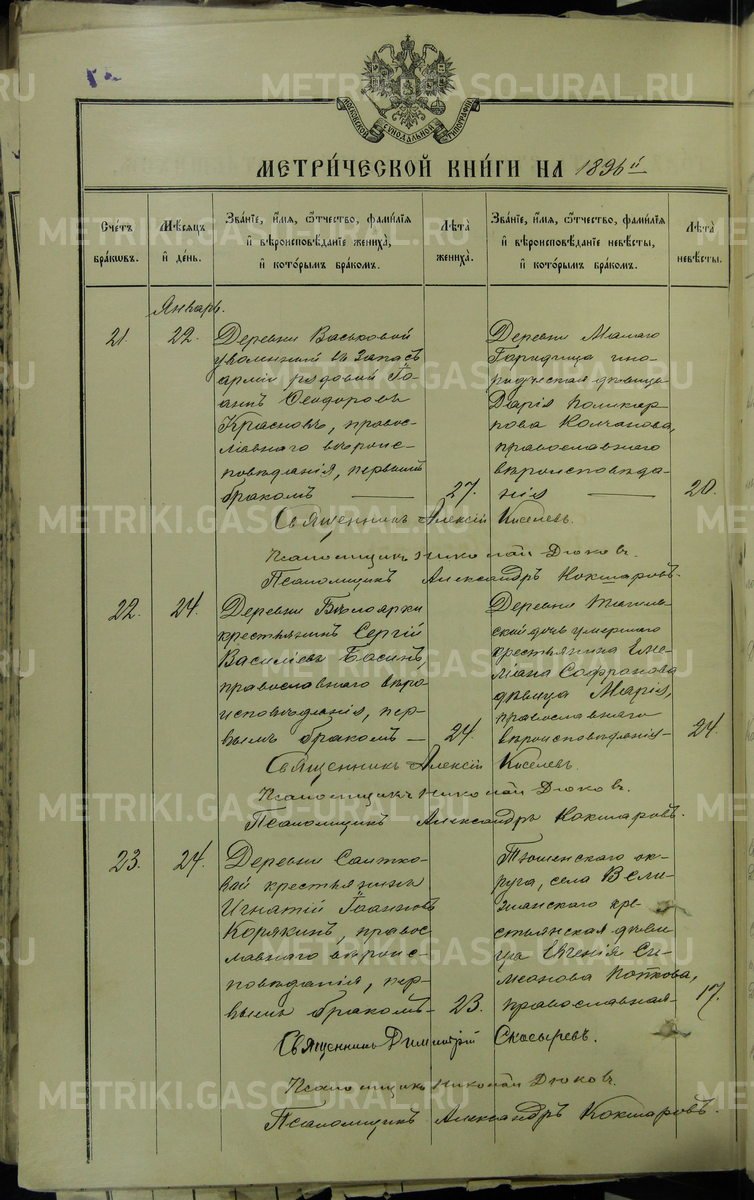 METRIKI.GASO-URAL.RU
МОСКОВСКОЙ СѴНОДАЛЬНОЙ ТИПОГРАФІИ
МЕТРИ́ЧЕСКОЙ КНИ́ГИ НА 1896й
Счéтъ бра́кѡвъ.
Мѣ́сяцъ и҆ де́нь.
Зва́нїе, и҆́мя, ѻ҆́тчество, фами́лїя
и҆ вѣроисповѣ́данїе жениха̀,
и҆ кото́рымъ бра́комъ.
Лѣта̀ жениха̀.
Зва́нїе, и҆́мя, ѻ҆́тчество, фами́лїя
и҆ вѣроисповѣ́данїе невѣ́сты,
и҆ кото́рымъ бра́комъ.
Лѣта̀ невѣ́сты.
Январь.
21. 22.
Деревни Васьковой
уволенный въ запасъ
арміи рядовой Іо-
аннъ Ѳеодоровъ
Красновъ, право-
славнаго вѣроис-
повѣданія, первымъ
бракомъ — 27.
Деревни Малаго
дѣвица
Дарія Поликар-
пова Колчанова,
православнаго
вѣроисповѣда-
нія — 20.
Священникъ Алексій Киселевъ.
Псаломщикъ Николай Дюковъ.
Псаломщикъ Александръ Кокшаровъ.
22. 24.
Деревни Бѣлоярки
крестьянинъ Сергій
Василіевъ Басинъ,
православнаго вѣро-
исповѣданія, пер-
вымъ бракомъ — 24.
Деревни
дочь умершаго
крестьянина Еме-
ліана Сафронова
дѣвица Марія,
православнаго
вѣроисповѣданія — 24.
Священникъ Алексій Киселевъ.
Псаломщикъ Николай Дюковъ.
Псаломщикъ Александръ Кокшаровъ.
23. 24.
Деревни Салтко-
вой крестьянинъ
Игнатій Іоанновъ
Корякинъ, право-
славнаго вѣроис-
повѣданія, пер-
вымъ бракомъ — 23.
Тюменскаго ок-
руга, села Вели-
жанскаго кре-
стьянская дѣви-
ца Евгенія Си-
меонова
православная — 17.
Священникъ Димитрій Скосыревъ.
Псаломщикъ Николай Дюковъ.
Псаломщикъ Александръ Кокшаровъ.